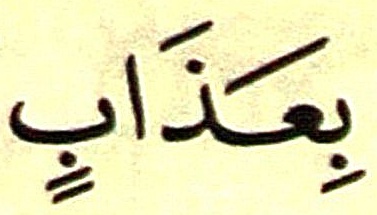 بِعَذَابٍ